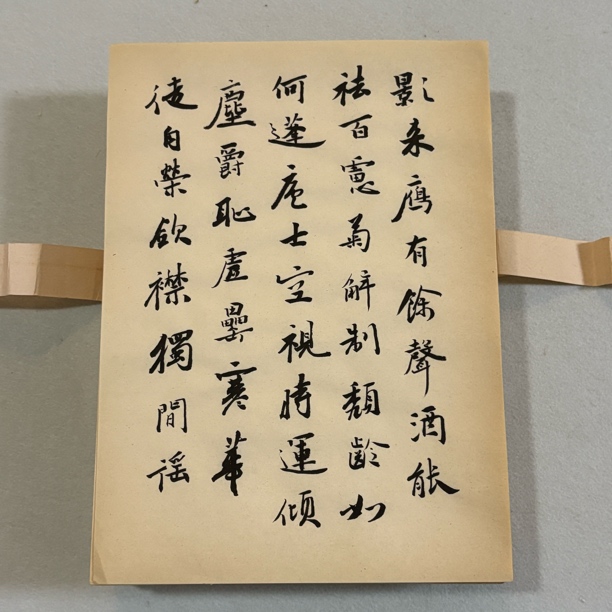 影来鴈有餘聲酒能
祛百慮菊解制頹齡如
何蓬庐士空視時運傾
塵爵恥虛罍寒華
徒自榮斂襟獨閒谣